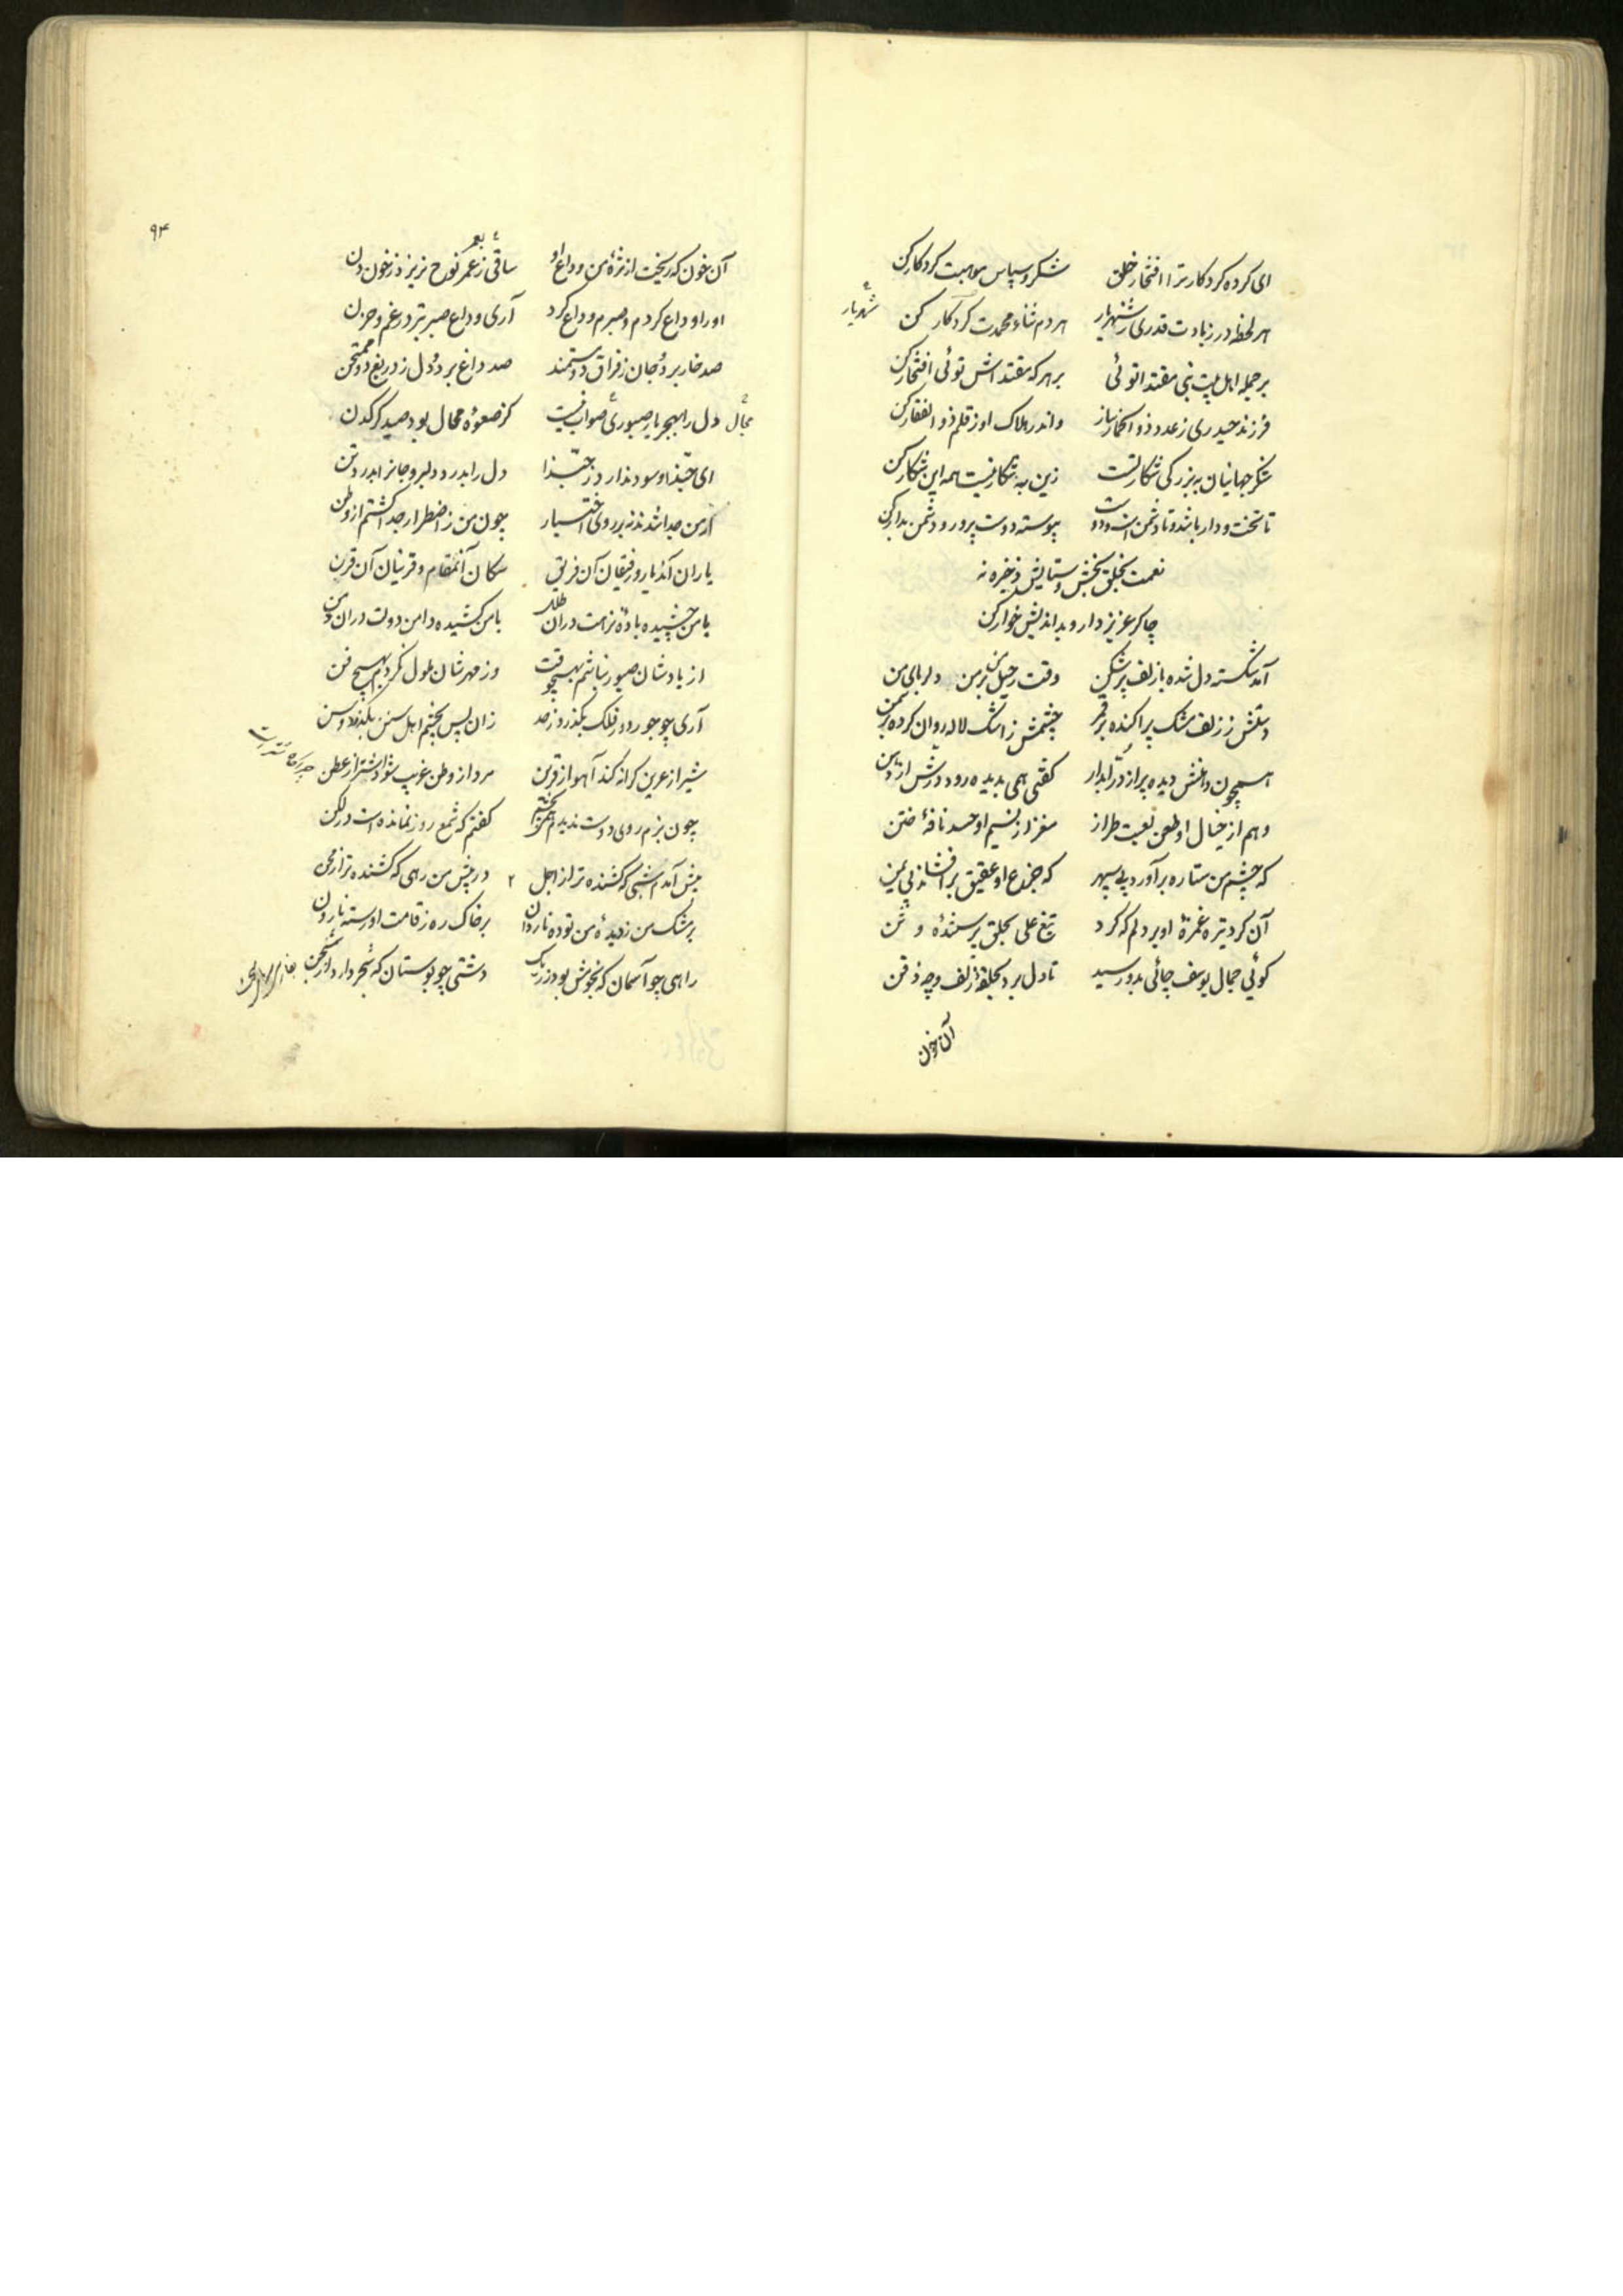 ای کرده کردکار ترا افتخار خلق شکر و سپاس موهبت کردکار کن
هر لحظه در زیادت قدری ز شهریار هر دم ثناء و محمدت کردکار کن
شهریار
بر جمله اهل بیت نبی مقتدا توئی بر هر که مقتداش توئی افتخار کن
فرزند حیدری ز عدد ذو الخمار ساز واندر هلاک او ز قلم ذو الفقار کن
شکر جهانیان به بزرکی شکار تست زین به شکار نیست همه این شکار کن
تا تخت و دار باشد و تا دشمن است و دوست پیوسته دوست پرور و دشمن بدار کن
نعمت بخلق بخش و ستایش ذخیره نه
چاکر عزیز دار و بداندیش خوار کن
آمد شکسته دل شده با زلف پرشکن وقت رحیل من بر من دلربای من
دستش ز زلف مشک پراکنده بر قمر چشمش ز اشک لاله روان کرده بر سمن
همچون دهانش دیده پر از در آبدار کفتی همی بدیده رود درش از دهن
وهم از خیال او طعن لعبت طراز مغز از نسیم او حسد نافهٔ ختن
که چشم من ستاره برآورد بی سپهر که جزع او عقیق برافشاند بی یمن
آن کرد تیره غمزهٔ او بر دلم که کرد تیغ علی بحلق پرستندهٔ وثن
کوئی جمال یوسف چائی بدو رسید تا دل برد بحلقهٔ زلف و چه ذقن
آن خون
۹۴
آن خون که ریخت از مژهٔ من وداع او ساقی ز عمر نوح نریزد ز خون دن
او را وداع کردم و صبرم وداع کرد آری وداع صبر بتر در غم و حزن
صد خار بر دو جان ز فراق دو مستمند صد داغ بر دو دل ز دریغ دو ممتحن
دل را بهجر یار صبوری صواب نیست کز صعوه محال بود صید کرکدن
ای حبذا و سود ندارد ز حبذا دل را بدرد دلبر و جانرا بدرد تن
از من جدا شدند نه بر روی اختیار چون من ز اضطرار جدا کشتم از وطن
یاران آن دیار و رفیقان آن فریق سکان آنمقام و قرینان آن قرن
با من چشیده بادهٔ نزهت در آن طلل با من کشیده دامن دولت در آن دمن
از یادشان صبور نباشم بهیچ وقت وز مهرشان ملول نکردم بهیچ فن
آری چو جور دور فلک بکذرد ز حد زان پس بچشم اهل سنن بکذرد وسن
شیر از عرین کرانه کند آهو از قرین مرد از وطن غریب شود اشتر از عطن
چون بزم روی دوست ندیدم کفتم که شمع روز نمانده است در لکن
پیش آمدم شبی که کشنده تر از اجل در پیش من رهی که کشنده تر از محن
بر مشک من ز دیدهٔ من توده ناردان بر خاک ره ز قامت او رسته نارون
راهی چو آسمان که نجومش بود ز ریک دشتی چو بوستان که شجر دارد از